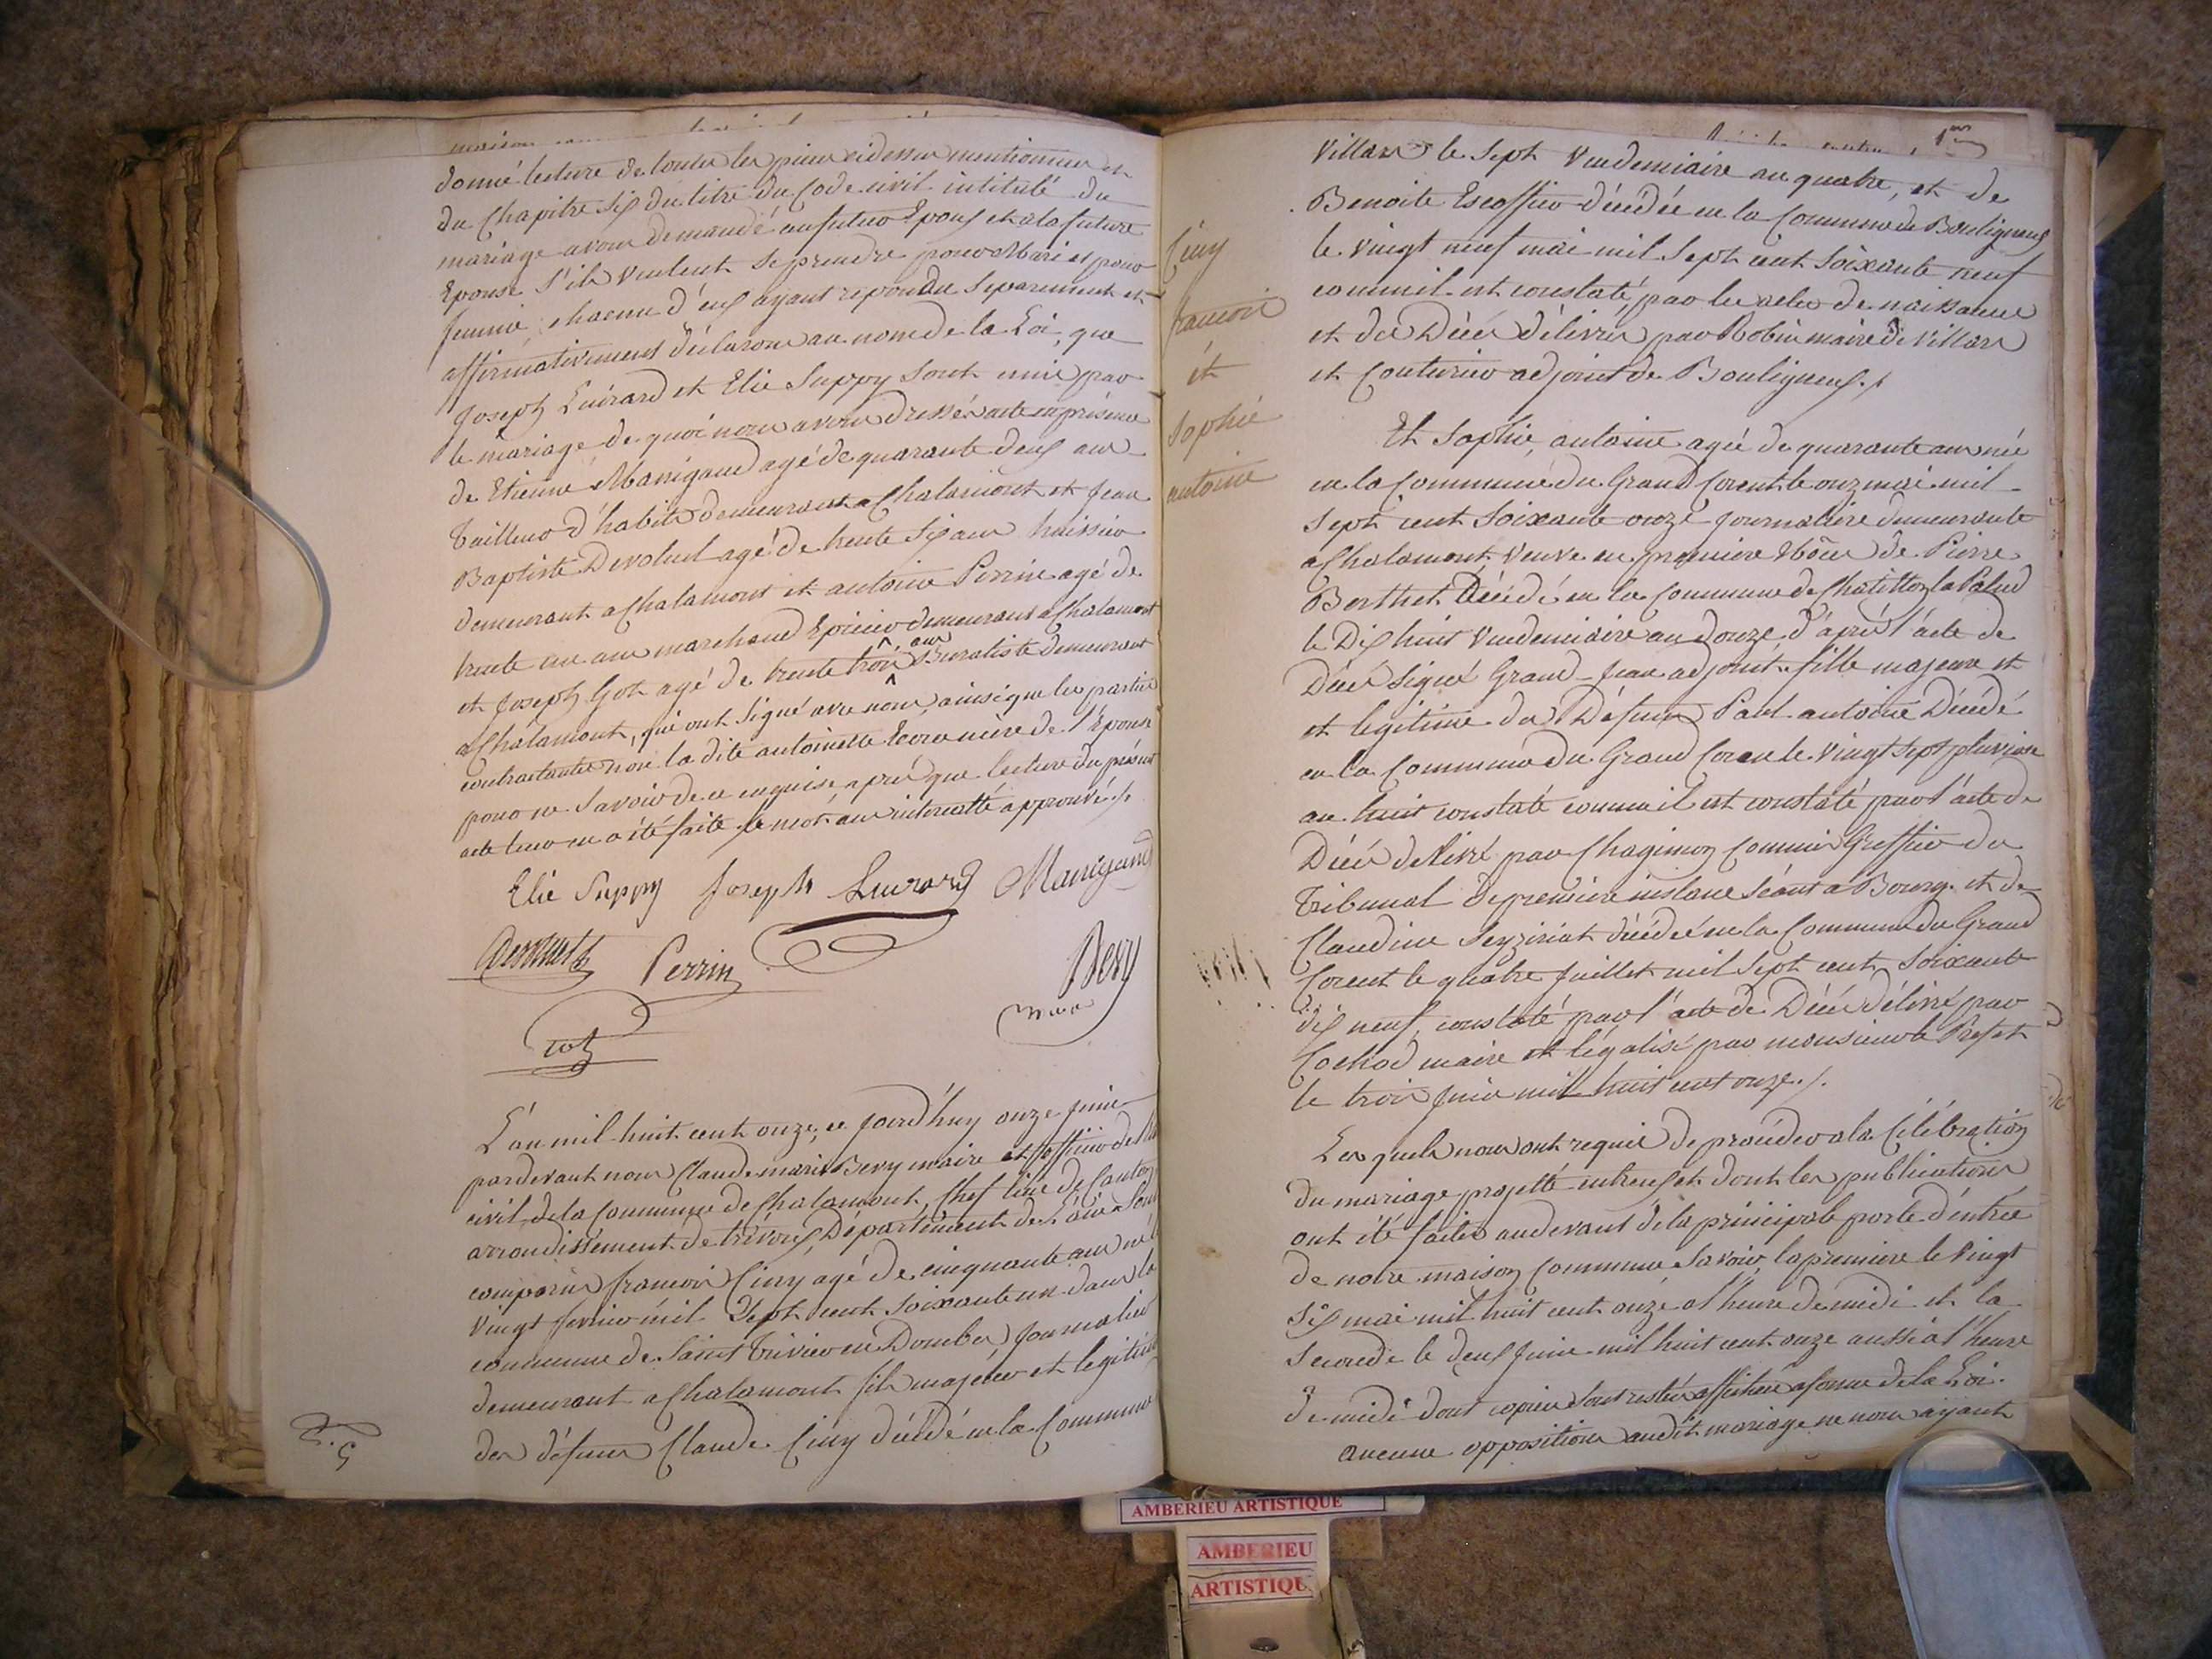 donné lecture de toutes les pieces cidessus mentionnées et
du Chapitre six du titre du Code civil intitulé du
mariage avons demandé au futur Epoux et a la future
Epouse s'ils veulent se prendre pour Mari et pour
femme, chacun d'eux ayant repondu separement et
affirmativement déclarons au nom de la Loi, que
Joseph Luirard et Elie Suppy sont unis par
le mariage, de quoi nous avons dressés acte en présence
de Etienne Manigand agé de quarante deux ans
tailleur d'habits demeurant a Chalamont et Jean
Baptiste Devoluet agé de trente six ans huissier
demeurant a Chalamont et antoine Perrin agé de
trente un ans marchand Epicier demeurant a Chalamont
et Joseph Got agé de trente trois ans Buraliste demeurant
a Chalamont, qui ont signé avec nous, ainsi que les parties
contractantes non la dite antoinette mère de l'Epouse
pour ne savoir de ce enquise, après que lecture du présent
acte leur en a été faite, le mot ans intercallé approuvé ./.
Elie Suppy Joseph Luirard Manigand
Devoluet Perrin
Bevy
maire
Got
L'an mil huit cent onze, ce jourd'huy onze juin
pardevant nous Claude marie Bevy maire et officier de l'état
civil de la Commune de Chalamont, Chef lieu de Canton
arrondissement de trévoux, Département de L'ain Sont
comparus francois Ciny agé de cinquante ans né le
vingt fevrier mil Sept cent soixante un dans la
commune de Saint Trivier en Dombes, Journalier
demeurant a Chalamont fils majeur et legitime
des défunts Claude Ciny décédé en la Commune
1er
Ciny
francois
et
Sophie
antoine
Villars le Sept Vendemiaire an quatre, et de
Benoite Escoffier décédée en la Commune de Bouligneux
le vingt neuf mai mil Sept cent Soixante neuf
comme il est constaté, par les actes de naissance
et de Décés délivrés par Robin maire de Villars
et Couturier adjoint de Bouligneux ./
Et Sophie antoine agée de quarante ans née
en la Commune du Grand Corent le onze mai mil
Sept cent Soixante onze Journaliere demeurante
a Chalamont, veuve en premiere Nôces de Pierre
Berthet Décédé en la Commune de Chatillon la Palud
le Dix huit Vendemiaire an douze d'après l'acte de
Décés Signé Grand-Jean adjoint. fille majeure et
et legitime des Défunts Paul antoine Décédé
en la Commune du Grand Corent le vingt Sept pluviose
an huit constaté comme il est constaté par l'acte de
Décés délivré par Chagimon Commis Greffier du
Tribunal de premiere instance Séant a Bourg. et de
Claudine Seyziriat décédée en la Commune du Grand
Corent le quatre Juillet mil Sept cent Soixante
dix neuf, constaté par l'acte de Décés délivré par
Cochod maire et légalisé par monsieur le Préfet
le trois Juin mil huit cent onze ./.
Les quels nous ont requis de procéder a la Célébration
du mariage projetté entr'eux et dont les publications
ont été faites audevant de la principale porte d'entrée
de notre maison Commune Savoir, la premiere le vingt
Six mai mil huit cent onze a l'heure de midi et la
Seconde le deux Juin mil huit cent onze aussi a l'heure
de midi dont copies sont restées affichées a forme de la Loi.
aucune opposition audit mariage ne nous ayant
AMBERIEU ARTISTIQUE
AMBERIEU
ARTISTIQU